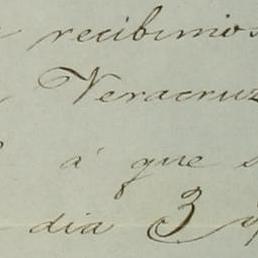 recibimos
Veracruz
á que
dia 3